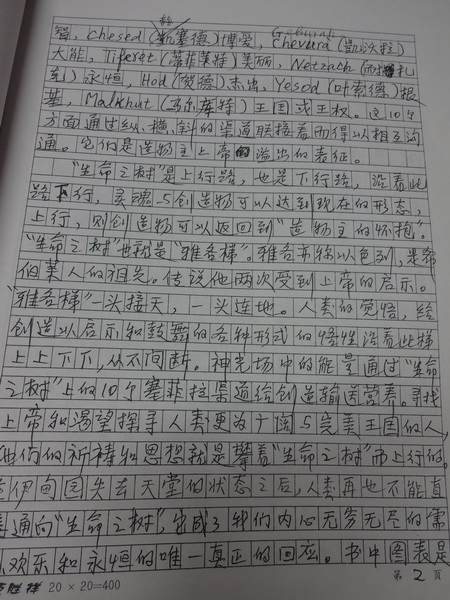 慧，Chesed（切塞德）博爱，Chevura（凯沃拉）
大能，Tiferet（蒂菲莱特）美丽，Netzach（而扎
克）永恒，Hod（贺德）杰出，Yesod（叶索德）根
基，Malkhut（马尔库特）王国或王权。这10个
方面通过纵、横、斜的渠道联接着而得以相互沟
通。它们是造物主上帝的溢出的表征。
“生命之树”是上行路，也是下行路，沿着此
路下行，灵魂与创造物可以达到现在的形态，
上行，则创造物可以返回到“造物主的怀抱”。
“生命之树”也就是“雅各梯”。雅各亦称以色列，是希
伯莱人的祖先。传说他两次受到上帝的启示。
“雅各梯”一头接天，一头连地。人类的觉悟，给
创造以启示和鼓舞的各种形式的悟性沿着此梯
上上下下，从不间断。神光场中的能量通过“生命
之树”上的10个塞菲拉渠道给创造输送营养。寻找
上帝和渴望探寻人类更为广阔与完美王国的人，
他们的祈祷和思想就是攀着“生命之树”而上行的。
在伊甸园失去天堂的状态之后，人类再也不能直
接通向“生命之树”，它成了我们内心无穷无尽的需
欢乐和永恒的唯一真正的回应。书中图表是
20 × 20=400
第 2 页